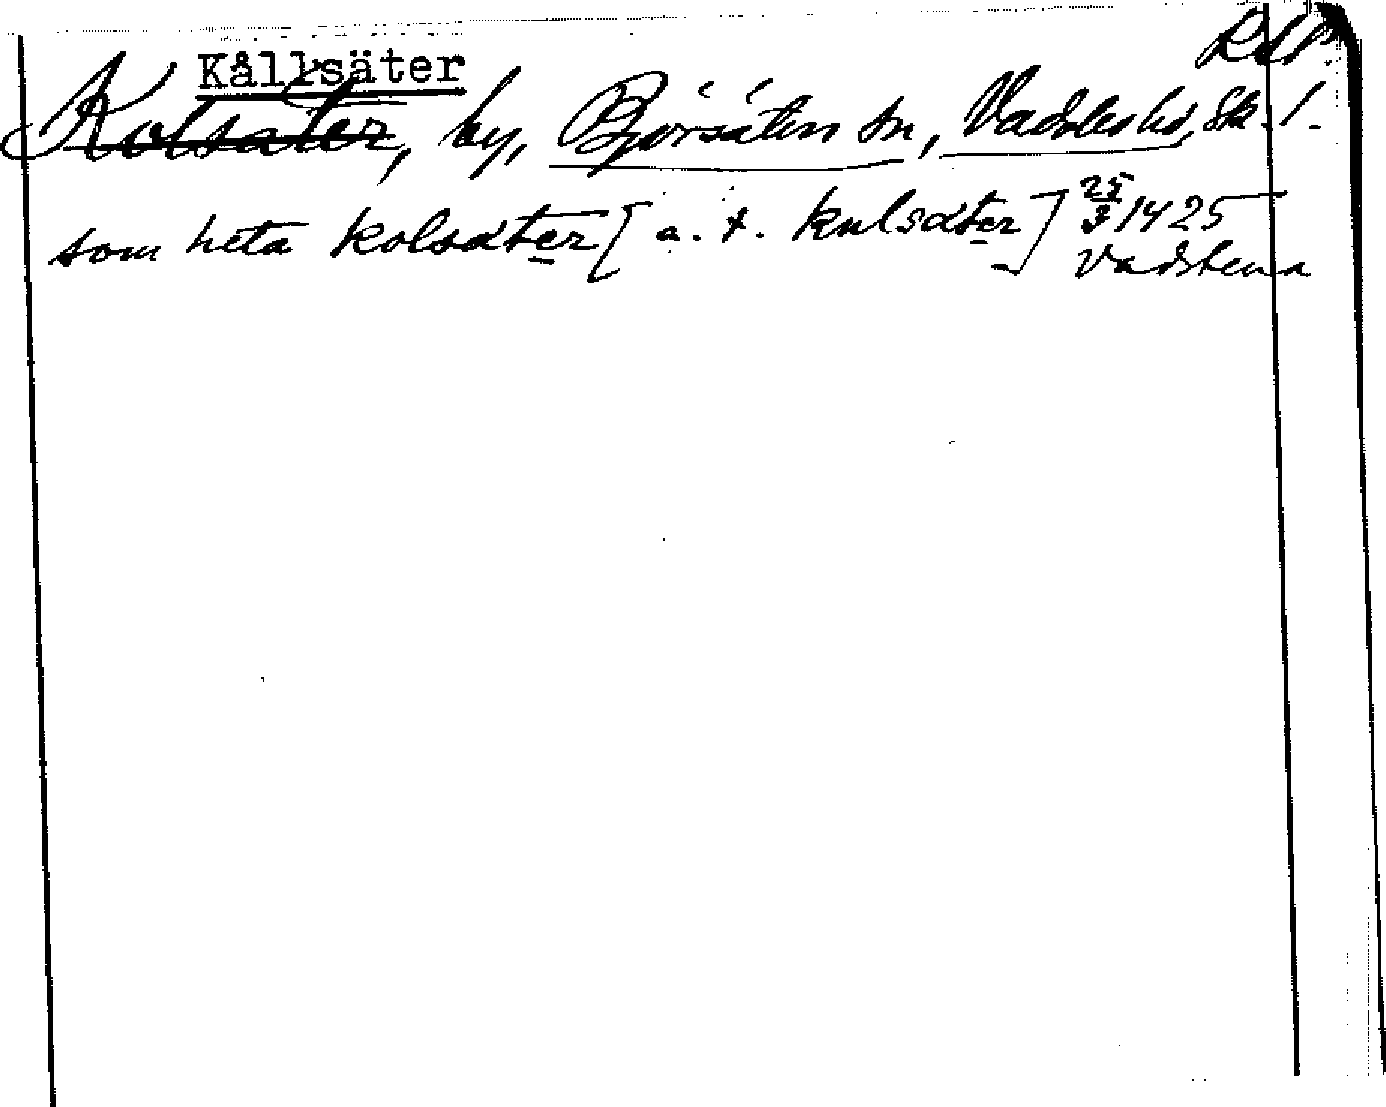 Kållsäter
Kolsater, by, Bjørsäters sn, Vadsbo hd, Sk. l.
som heta kolsater [ a. t. kulsater ] 25/3 1425
Vadstena